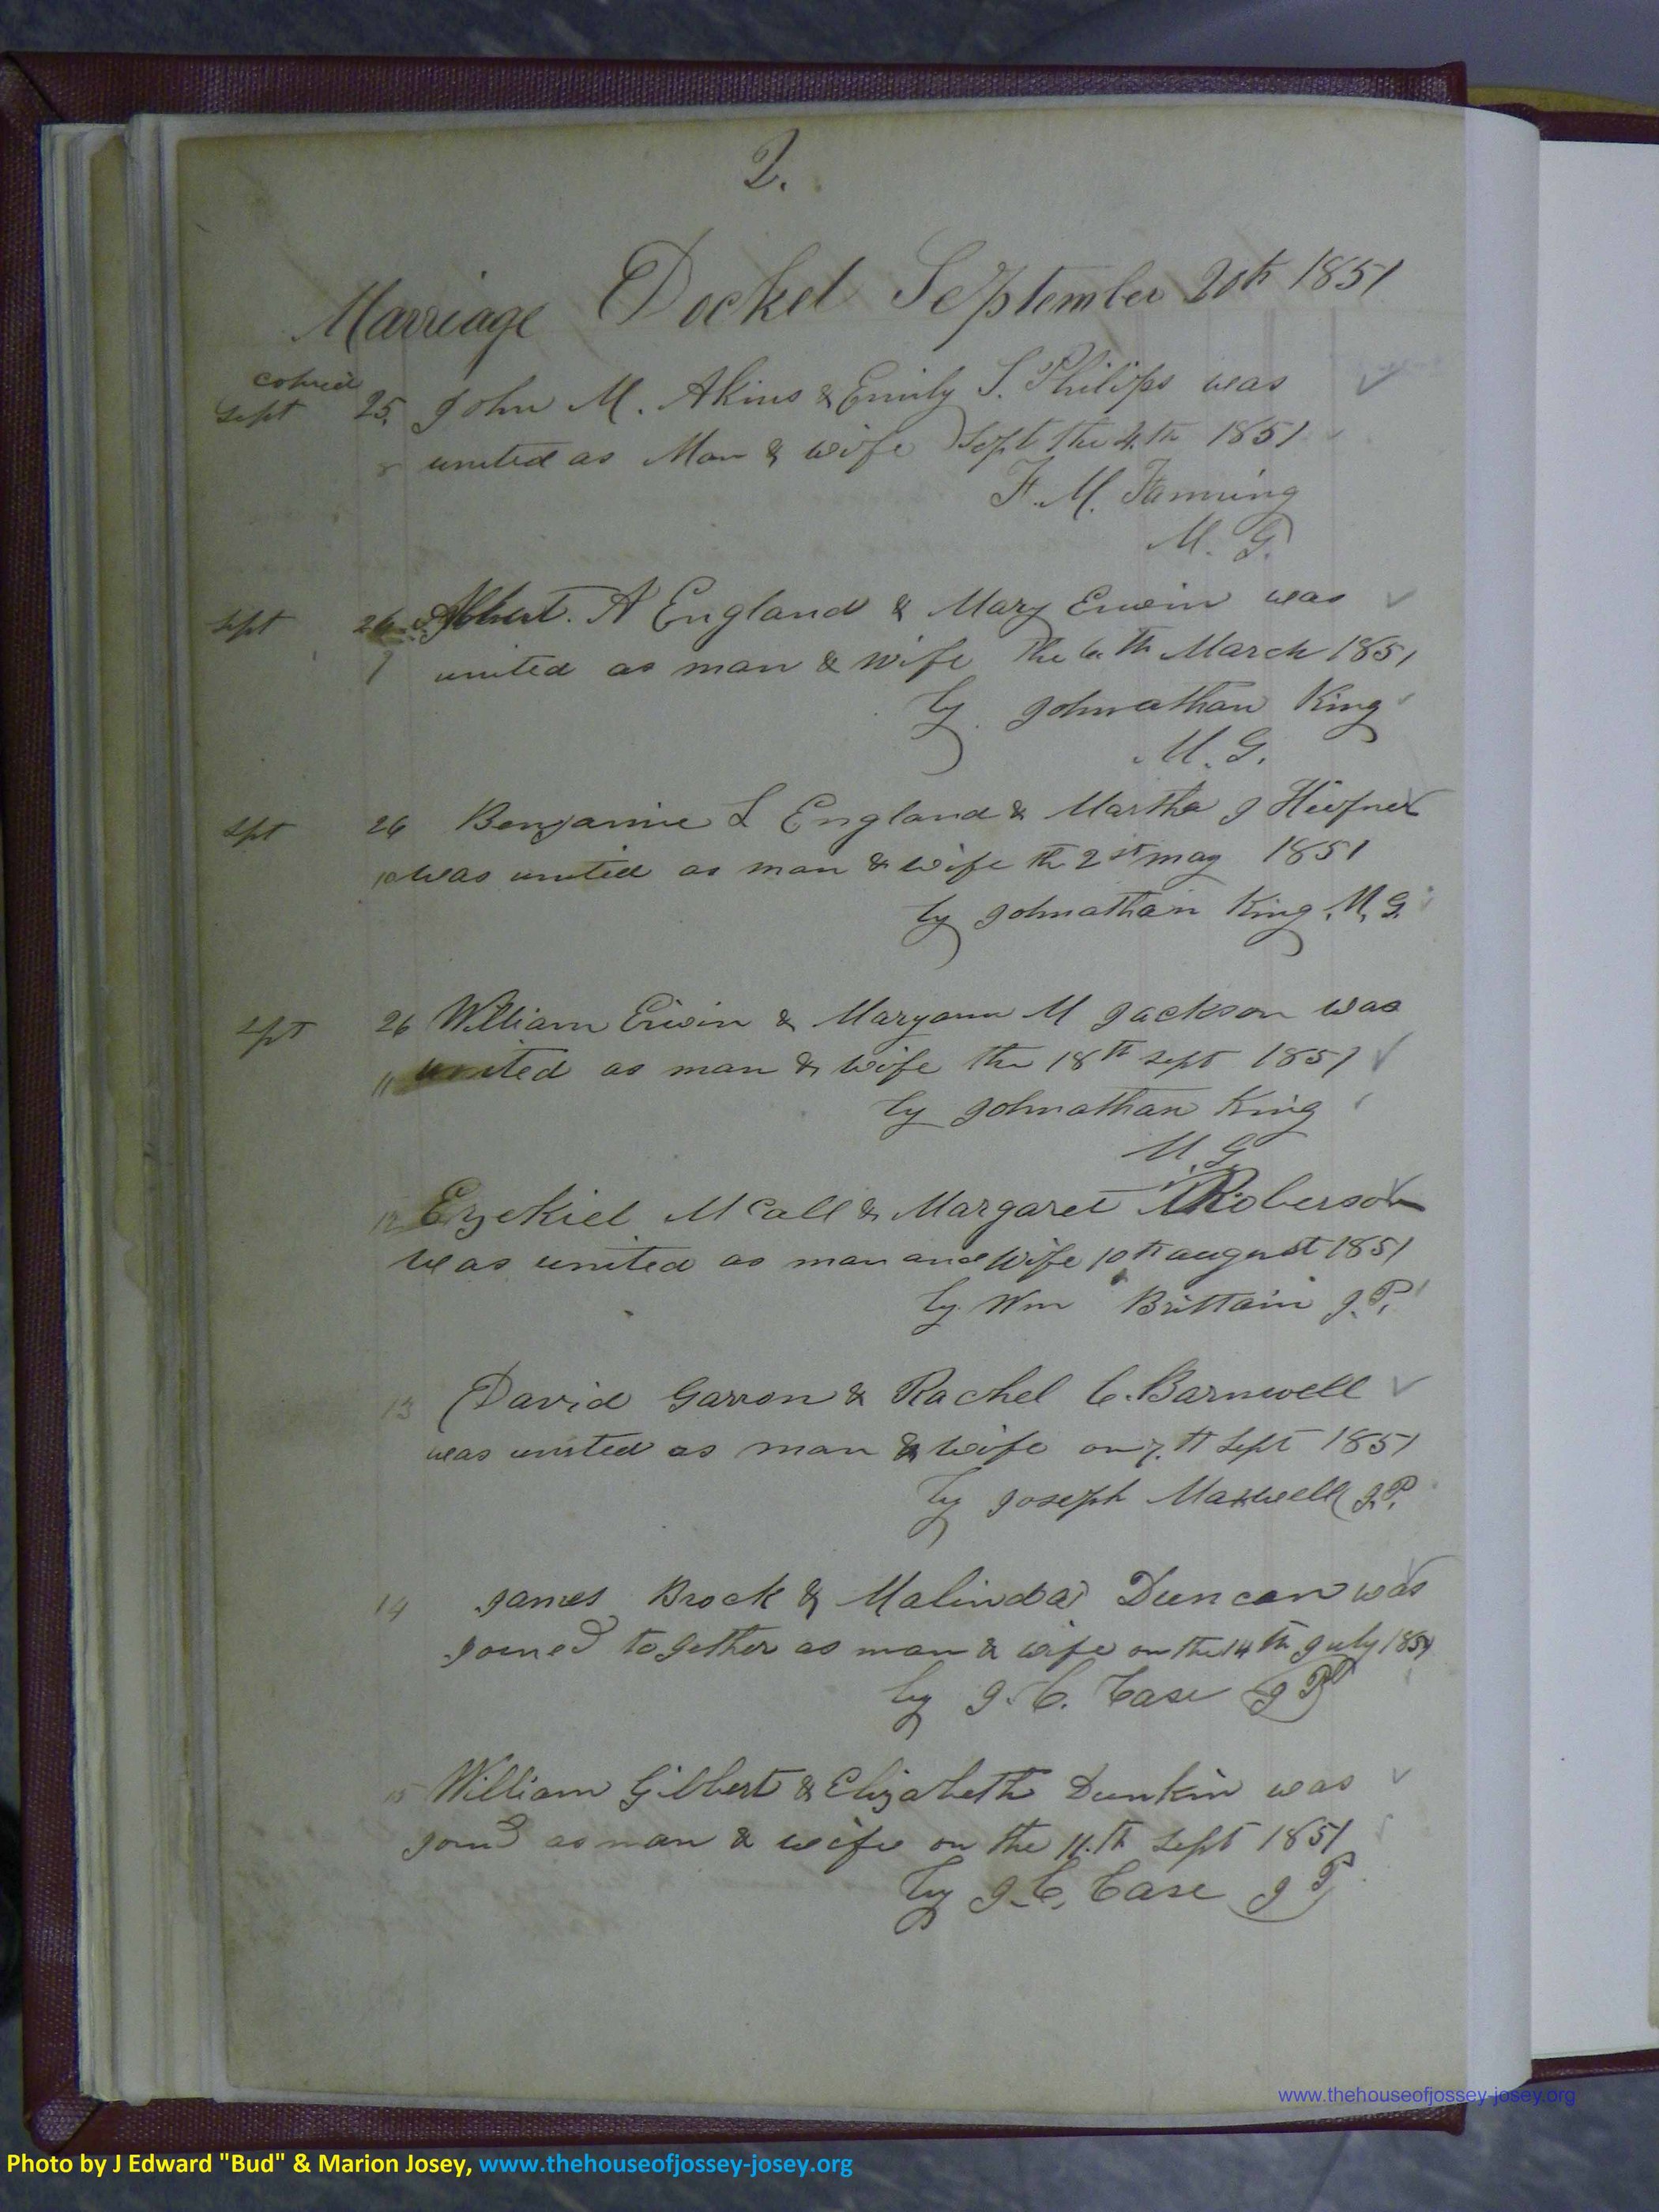 2.
Marriage Docket September 20th 1851
Sept 25. John M. Akins & Emily S. Philips was
8 united as Man & wife Sept the 4th 1851
F. M. Fanning
M. G.
Sept 26 Albert. A England & Mary Erwin was
9 united as man & wife the 6th March 1851
by Johnathan King
M. G.
Spt 26 Benjamine L England & Martha J
10 was united as man & wife th 2st may 1851
by Johnathan King M, G.
Spt 26 William Erwin & Maryann M Jackson was
11 united as man & wife the 18th Sept 1851
by Johnathan King
M. G.
12 Ezekiel McCall & Margaret Roberson
was united as man and wife 10th august 1851
by Wm Brittain J. P.
13 David Garron & Rachel C. Barnwell
was united as man & wife on 7.th Sept 1851
by Joseph Maxwell J. P.
14 James Brock & Malinda Duncan was
joined together as man & wife on the 14th July 1851
by J. C. Case J P
15 William Gilbert & Elizabeth Dunkin was
joind as man & wife on the 11.th Sept 1851
by J. C. Case J P
www.thehouseofjossey-josey.org
Photo by J Edward "Bud" & Marion Josey, www.thehouseofjossey-josey.org